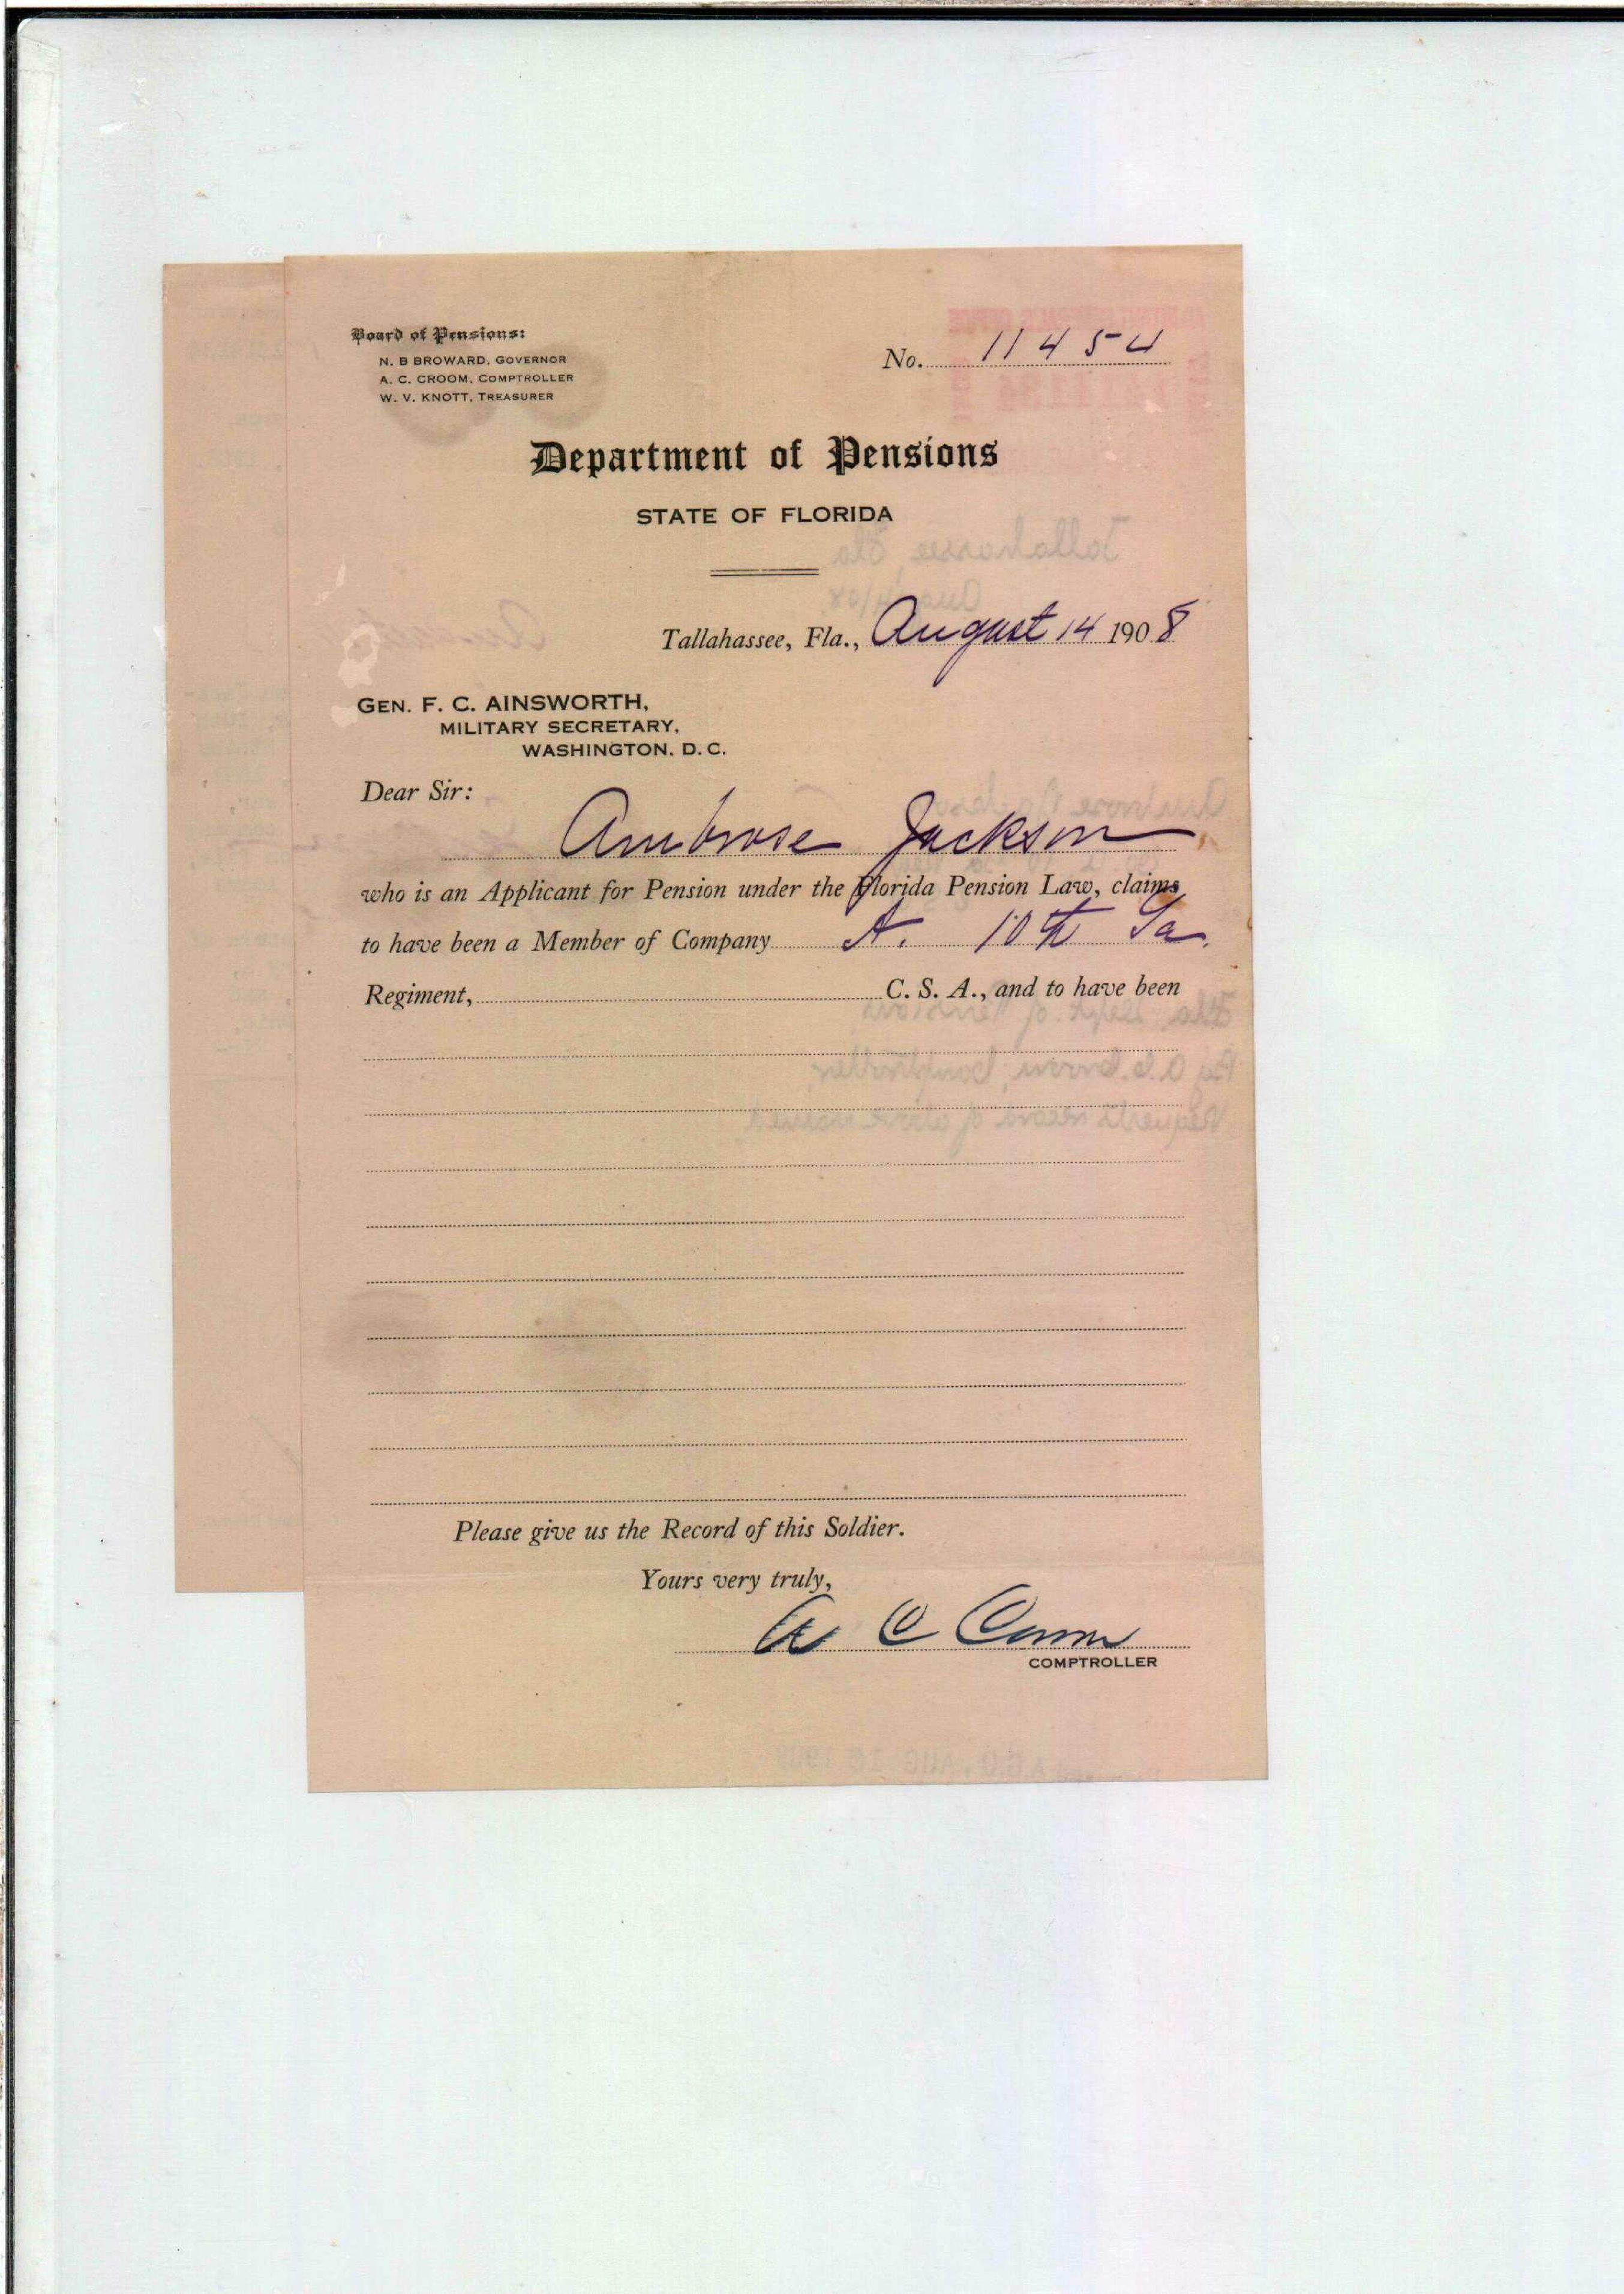 Board of Pensions:
N. B BROWARD, GOVERNOR
A. C. CROOM, COMPTROLLER
W. V. KNOTT, TREASURER
No. 11454
Department of Pensions
STATE OF FLORIDA
Tallahassee, Fla., August 14 1908
GEN. F. C. AINSWORTH,
MILITARY SECRETARY,
WASHINGTON, D. C.
Dear Sir:
Ambrose Jackson
who is an Applicant for Pension under the Florida Pension Law, claims
to have been a Member of Company A. 10th Ga.
Regiment, C. S. A., and to have been
Please give us the Record of this Soldier.
Yours very truly,
A C Croom
COMPTROLLER